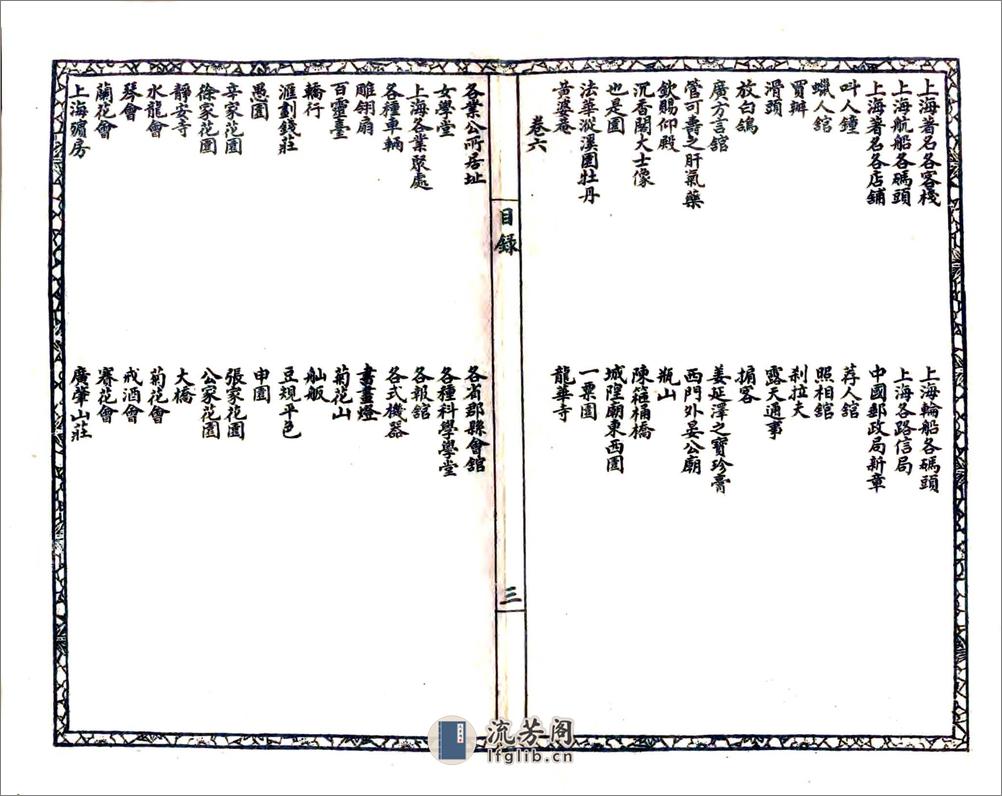 上海著名各客棧
上海輪船各碼頭
上海航船各碼頭
上海各路信局
上海著名各店舖
中國郵政局新章
叫人鐘
荐人館
蠟人館
照相館
買辦
剎拉夫
滑頭
露天通事
放白鴿
掮客
廣方言館
姜延澤之寶珍膏
管可壽之肝氣藥
西門外晏公廟
欽賜仰殿
瓶山
沉香閣大士像
陳箍桶橋
也是園
城隍廟東西園
法華漎溪園牡丹
一粟園
黃婆菴
龍華寺
卷六
目錄
三
各業公所居址
各省郡縣會館
女學堂
各種科學學堂
上海各業聚處
各報館
各種車輛
各式機器
雕翎扇
書畫燈
百靈臺
菊花山
轎行
舢舨
滙劃錢莊
豆規平色
愚園
申園
辛家花園
張家花園
徐家花園
公家花園
靜安寺
大橋
水龍會
菊花會
琴會
戒酒會
蘭花會
賽花會
上海殯房
廣肇山莊
流芳阁
lfglib.cn